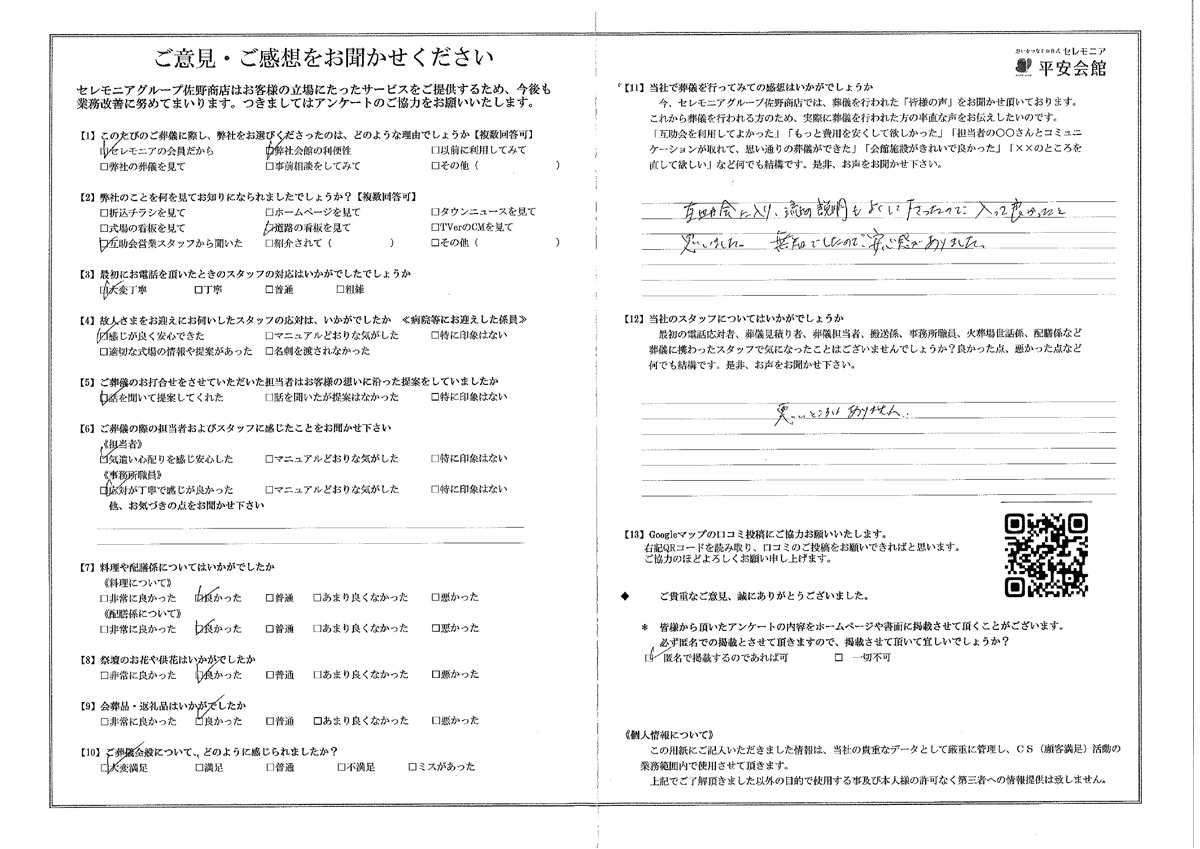 ご意見・ご感想をお聞かせください
セレモニアグループ佐野商店はお客様の立場にたったサービスをご提供するため、今後も
業務改善に努めてまいります。つきましてはアンケートのご協力をお願いいたします。
【1】このたびのご葬儀に際し、弊社をお選びくださったのは、どのような理由でしょうか【複数回答可】
☑セレモニアの会員だから ☑弊社会館の利便性 □以前に利用してみて
□弊社の葬儀を見て □事前相談をしてみて □その他（ ）
【2】弊社のことを何を見てお知りになられましたでしょうか？【複数回答可】
□折込チラシを見て □ホームページを見て □タウンニュースを見て
□式場の看板を見て ☑道路の看板を見て □TVerのCMを見て
☑互助会営業スタッフから聞いた □紹介されて（ ） □その他（ ）
【3】最初にお電話を頂いたときのスタッフの対応はいかがでしたでしょうか
☑大変丁寧 □丁寧 □普通 □粗雑
【4】故人さまをお迎えにお伺いしたスタッフの応対は、いかがでしたか ≪病院等にお迎えした係員≫
☑感じが良く安心できた □マニュアルどおりな気がした □特に印象はない
□適切な式場の情報や提案があった □名刺を渡されなかった
【5】ご葬儀のお打合せをさせていただいた担当者はお客様の想いに沿った提案をしていましたか
☑話を聞いて提案してくれた □話を聞いたが提案はなかった □特に印象はない
【6】ご葬儀の際の担当者およびスタッフに感じたことをお聞かせ下さい
《担当者》
☑気遣い心配りを感じ安心した □マニュアルどおりな気がした □特に印象はない
《事務所職員》
☑応対が丁寧で感じが良かった □マニュアルどおりな気がした □特に印象はない
他、お気づきの点をお聞かせ下さい
【7】料理や配膳係についてはいかがでしたか
《料理について》
□非常に良かった ☑良かった □普通 □あまり良くなかった □悪かった
《配膳係について》
□非常に良かった ☑良かった □普通 □あまり良くなかった □悪かった
【8】祭壇のお花や供花はいかがでしたか
□非常に良かった ☑良かった □普通 □あまり良くなかった □悪かった
【9】会葬品・返礼品はいかがでしたか
□非常に良かった ☑良かった □普通 □あまり良くなかった □悪かった
【10】ご葬儀全般について、どのように感じられましたか？
☑大変満足 □満足 □普通 □不満足 □ミスがあった
想いをつなぐお葬式 セレモニア
平安会館
【11】当社で葬儀を行ってみての感想はいかがでしょうか
今、セレモニアグループ佐野商店では、葬儀を行われた「皆様の声」をお聞かせ頂いております。
これから葬儀を行われる方のため、実際に葬儀を行われた方の率直な声をお伝えしたいのです。
「互助会を利用してよかった」「もっと費用を安くして欲しかった」「担当者の〇〇さんとコミュニ
ケーションが取れて、思い通りの葬儀ができた」「会館施設がきれいで良かった」「××のところを
直して欲しい」など何でも結構です。是非、お声をお聞かせ下さい。
互助会に入り、流れの説明もよくして下さったので、入って良かったと
思いました。無知でしたので、安心感がありました。
【12】当社のスタッフについてはいかがでしょうか
最初の電話応対者、葬儀見積り者、葬儀担当者、搬送係、事務所職員、火葬場世話係、配膳係など
葬儀に携わったスタッフで気になったことはございませんでしょうか？良かった点、悪かった点など
何でも結構です。是非、お声をお聞かせ下さい。
悪いところはありません。
【13】Googleマップの口コミ投稿にご協力お願いいたします。
右記QRコードを読み取り、口コミのご投稿をお願いできればと思います。
ご協力のほどよろしくお願い申し上げます。
◆ ご貴重なご意見、誠にありがとうございました。
＊ 皆様から頂いたアンケートの内容をホームページや書面に掲載させて頂くことがございます。
必ず匿名での掲載とさせて頂きますので、掲載させて頂いて宜しいでしょうか？
☑ 匿名で掲載するのであれば可 □ 一切不可
《個人情報について》
この用紙にご記入いただきました情報は、当社の貴重なデータとして厳重に管理し、ＣＳ（顧客満足）活動の
業務範囲内で使用させて頂きます。
上記でご了解頂きました以外の目的で使用する事及び本人様の許可なく第三者への情報提供は致しません。